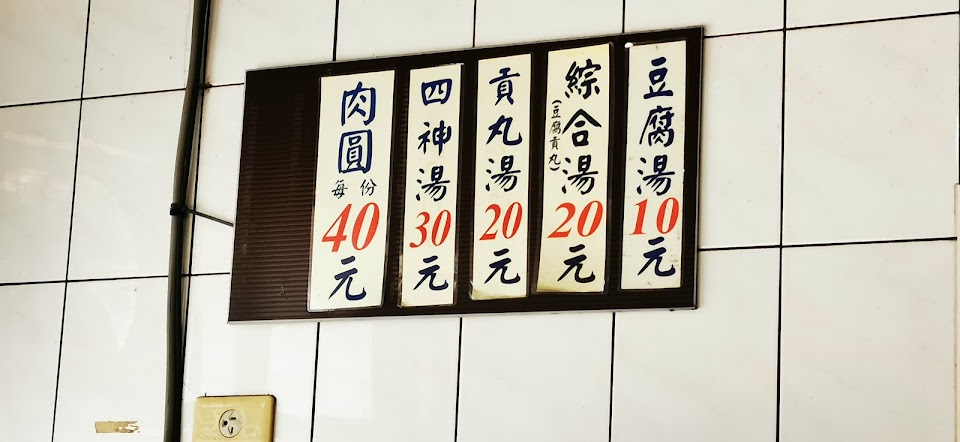 肉圓每份40元
四神湯30元
貢丸湯20元
綜合湯(豆腐貢丸)20元
豆腐湯10元